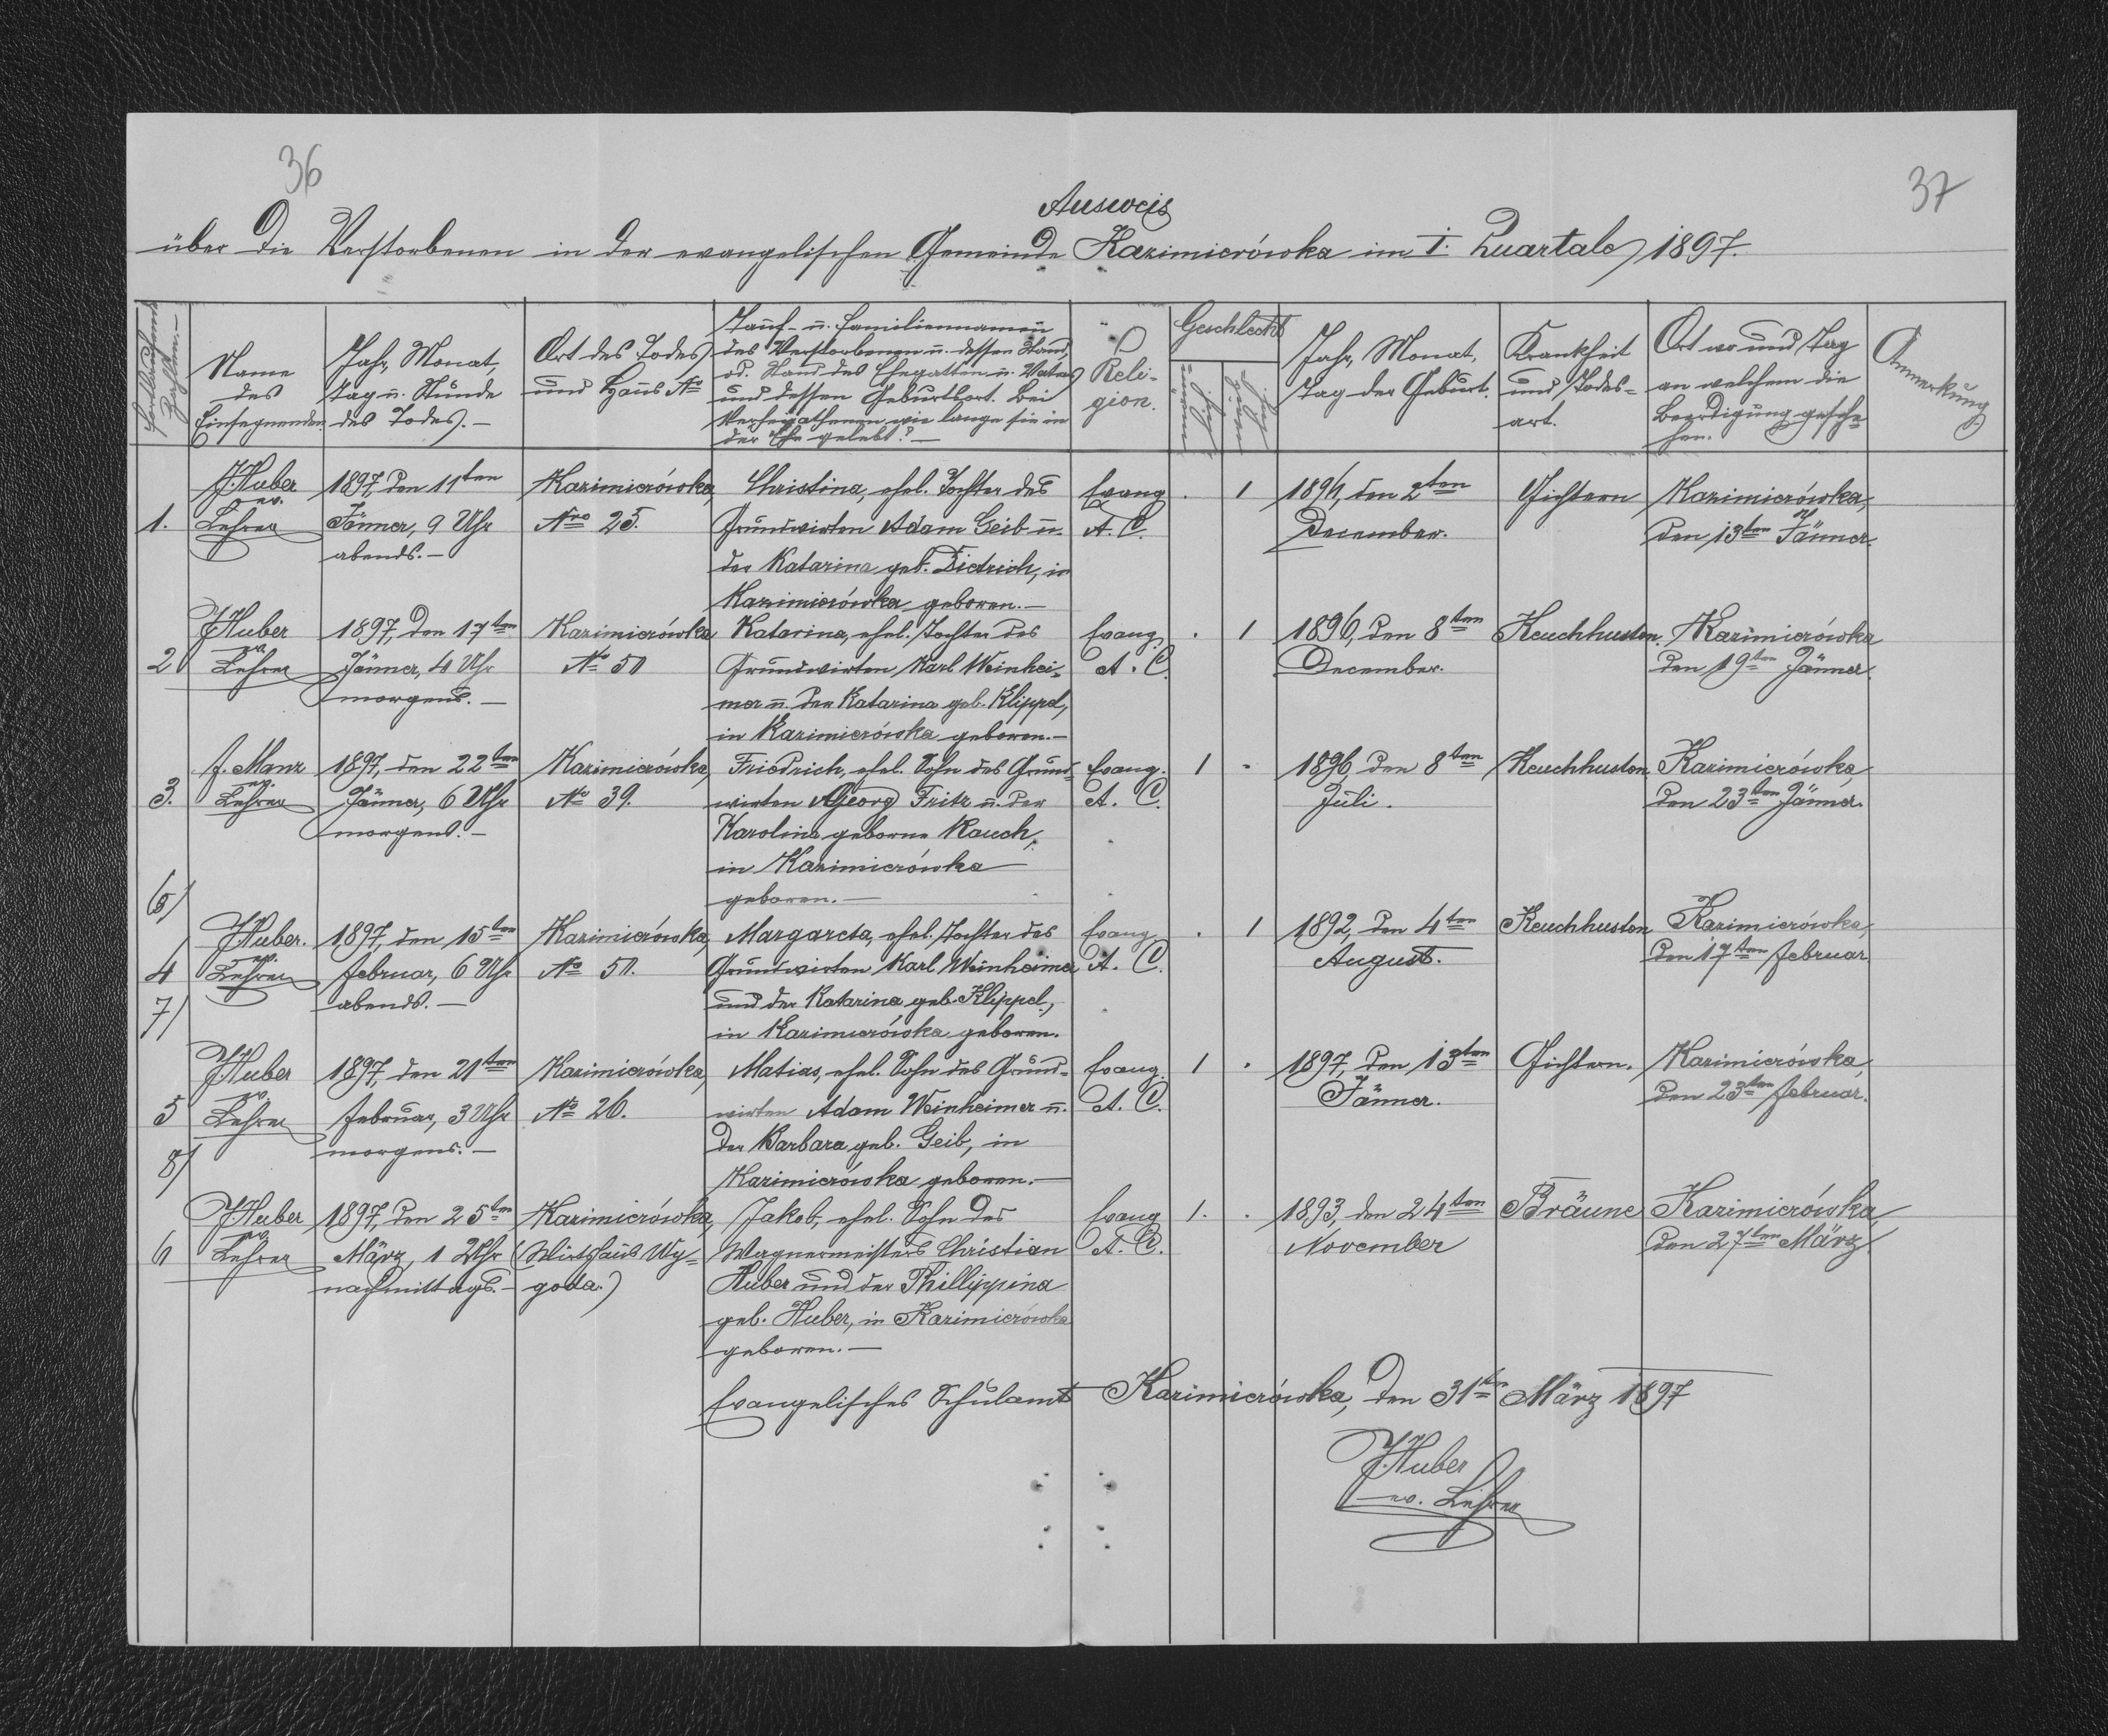 36
37
Ausweis
über die Verstorbenen in der evangelischen Gemeinde Kazimierówka im I. Quartale 1897.
Fortlaufende
Zahlen.-
Name
des
Einsegnenden.
Jahr, Monat,
Tag u. Stunde
des Todes.-
Ort des Todes
und Haus No
Tauf- u. Familiennamen
des Verstorbenen u. dessen Stand,
od. Stand des Ehegatten u. Vaters
und dessen Geburtsort. Bei
Verheirathenen wie lange sie in
der Ehe gelebt?-
Reli-
gion.
Geschlecht
Jahr, Monat,
Tag der Geburt.
Krankheit
und Todes-
art.
Ort wo und Tag
an welchem die
Beerdigung gesche-
hen.
Anmerkung
1.
J. Huber
ev.
Lehrer
1897, den 11ten
Jänner, 9 Uhr
abends.-
Kazimierówka,
Nro 25.
Christina, ehel. Tochter des
Grundwirten Adam Geib u.
der Katarina geb. Dietrich, in
Kazimierówka geboren.-
Evang.
A. C.
. 1
1896, den 2ten
December.
Gichtern
Kazimierówka,
den 13ten Jänner.
2
J. Huber
ev.
Lehrer
1897, den 17ten
Jänner, 4 Uhr
morgens.-
Kazimierówka
No 51
Katarina, ehel. Tochter des
Grundwirten Karl Weinhei-
mer u. der Katarina geb. Klippel,
in Kazimierówka geboren.-
Evang.
A. C.
. 1
1896, den 8ten
December.
Keuchhusten.
Kazimierówka
den 19ten Jänner.
3.
J. Manz
ev.
Lehrer
1897, den 22ten
Jänner, 6 Uhr
morgens.-
Kazimierówka,
No 39.
Friedrich, ehel. Sohn des Grund-
wirten Georg Fritz u. der
Karolina geborne Rauch,
in Kazimierówka
geboren.-
Evang.
A. C.
1 -
1896, den 8ten
Juli.
Keuchhusten
Kazimierówka,
den 23ten Jänner.
6)
4
J. Huber.
ev.
Lehrer
1897, den 15ten
Februar, 6 Uhr
abends.-
Kazimierówka,
No 51.
Margareta, ehel. Tochter des
Grundwirten Karl Weinheimer
und der Katarina geb. Klippel,
in Kazimierówka geboren.
Evang.
A. C.
. 1
1892, den 4ten
August.
Keuchhusten
Kazimierówka,
den 17ten Februar
7)
5
J. Huber
ev.
Lehrer
1897, den 21ten
Februar, 3 Uhr
morgens.-
Kazimierówka,
No 26.
Matias, ehel. Sohn des Grund-
wirten Adam Weinheimer u.
der Barbara geb. Geib, in
Kazimierówka geboren.-
Evang.
A. C.
1 .
1897, den 13ten
Jänner.
Gichtern.
Kazimierówka,
den 23ten Februar.
8)
6
J. Huber
ev.
Lehrer
1897, den 25ten
März, 1 Uhr
nachmittags.-
Kazimierówka,
(Wirtshaus Wy-
goda.)
Jakob, ehel. Sohn des
Wagnermeisters Christian
Huber und der Phillippina
geb. Huber, in Kazimierówka
geboren.-
Evang
A. C.
1. .
1893, den 24ten
November
Bräune
Kazimierówka,
den 27ten März
Evangelisches Schulamt Kazimierówka, den 31ten März 1897
J. Huber
ev. Lehrer